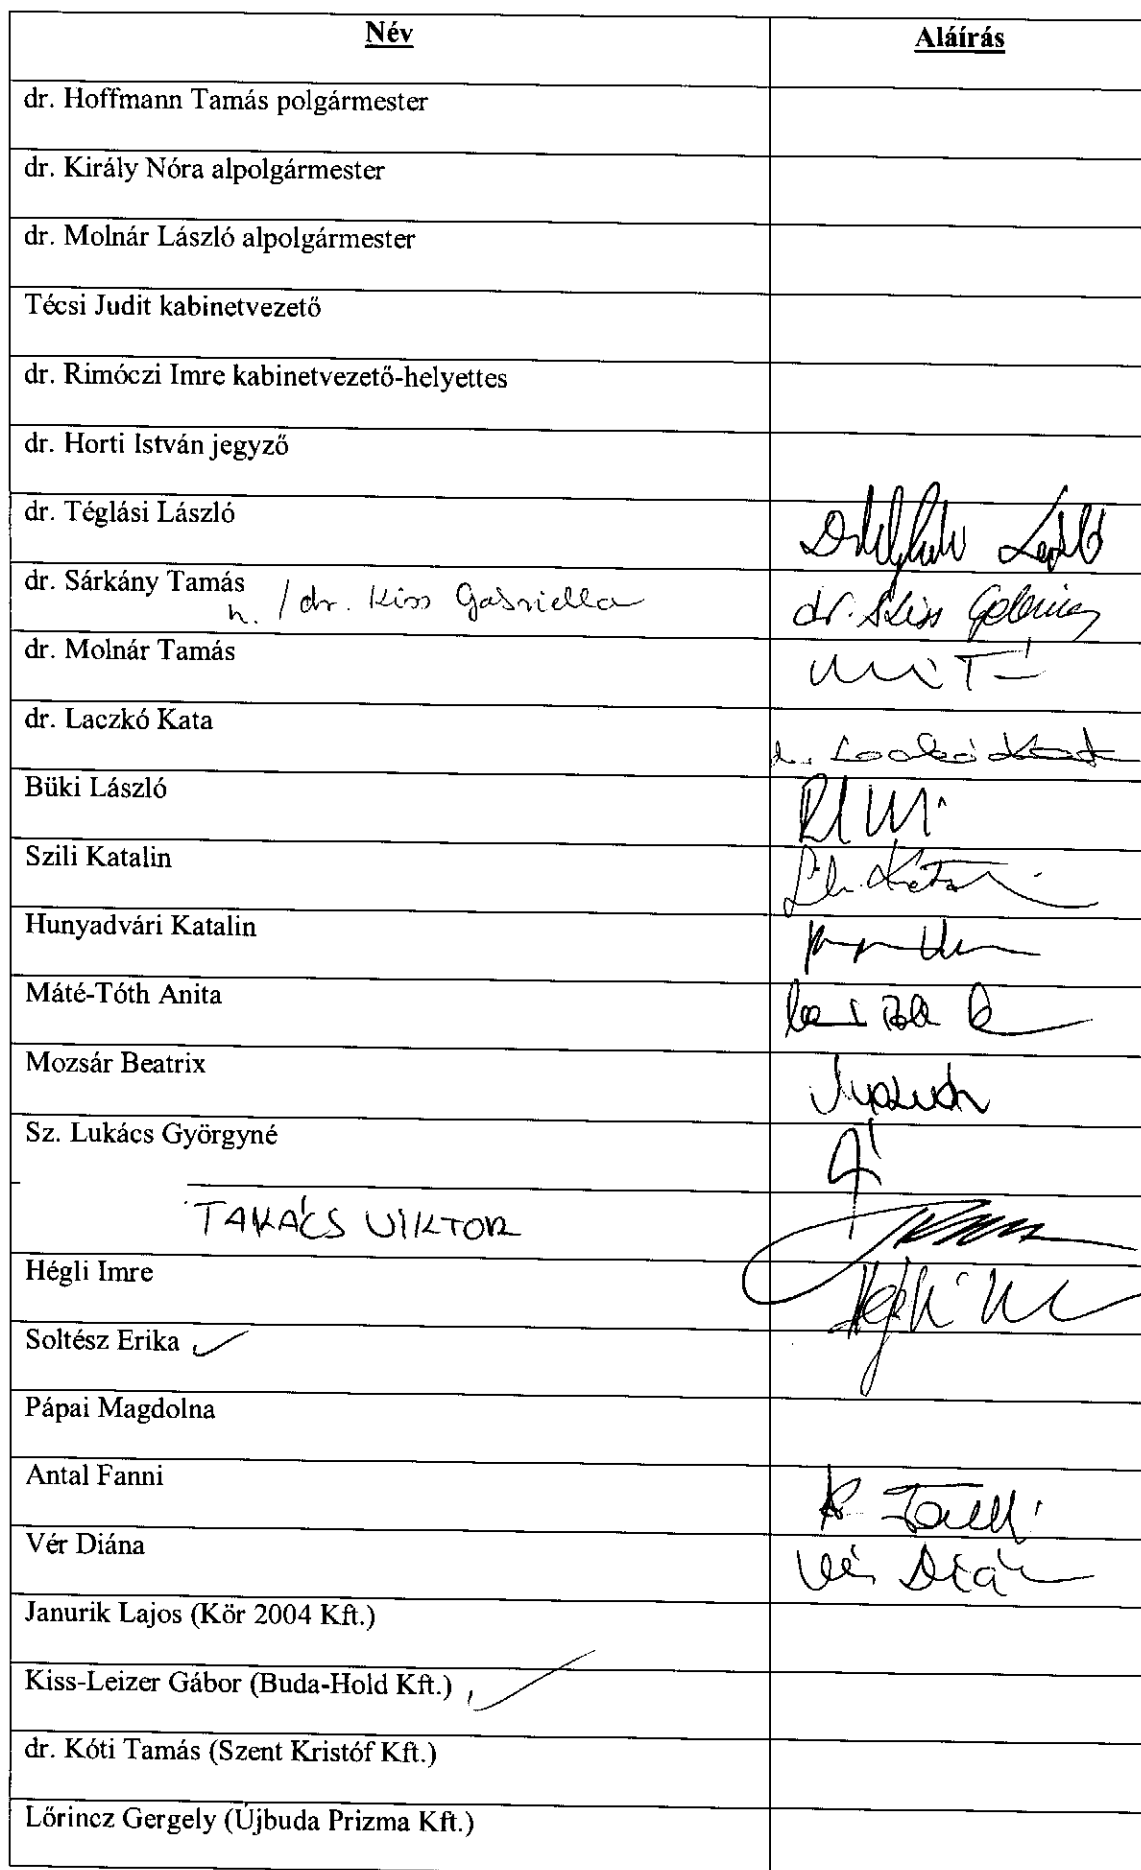 Név Aláírás
dr. Hoffmann Tamás polgármester
dr. Király Nóra alpolgármester
dr. Molnár László alpolgármester
Técsi Judit kabinetvezető
dr. Rimóczi Imre kabinetvezető-helyettes
dr. Horti István jegyző
dr. Téglási László
dr. Sárkány Tamás
h. / dr. Kiss Gabriella dr. Kiss
dr. Molnár Tamás
dr. Laczkó Kata
Büki László
Szili Katalin
Hunyadvári Katalin
Máté-Tóth Anita
Mozsár Beatrix
Sz. Lukács Györgyné
TAKÁCS VIKTOR
Hégli Imre
Soltész Erika
Pápai Magdolna
Antal Fanni
Vér Diána
Janurik Lajos (Kör 2004 Kft.)
Kiss-Leizer Gábor (Buda-Hold Kft.)
dr. Kóti Tamás (Szent Kristóf Kft.)
Lőrincz Gergely (Újbuda Prizma Kft.)